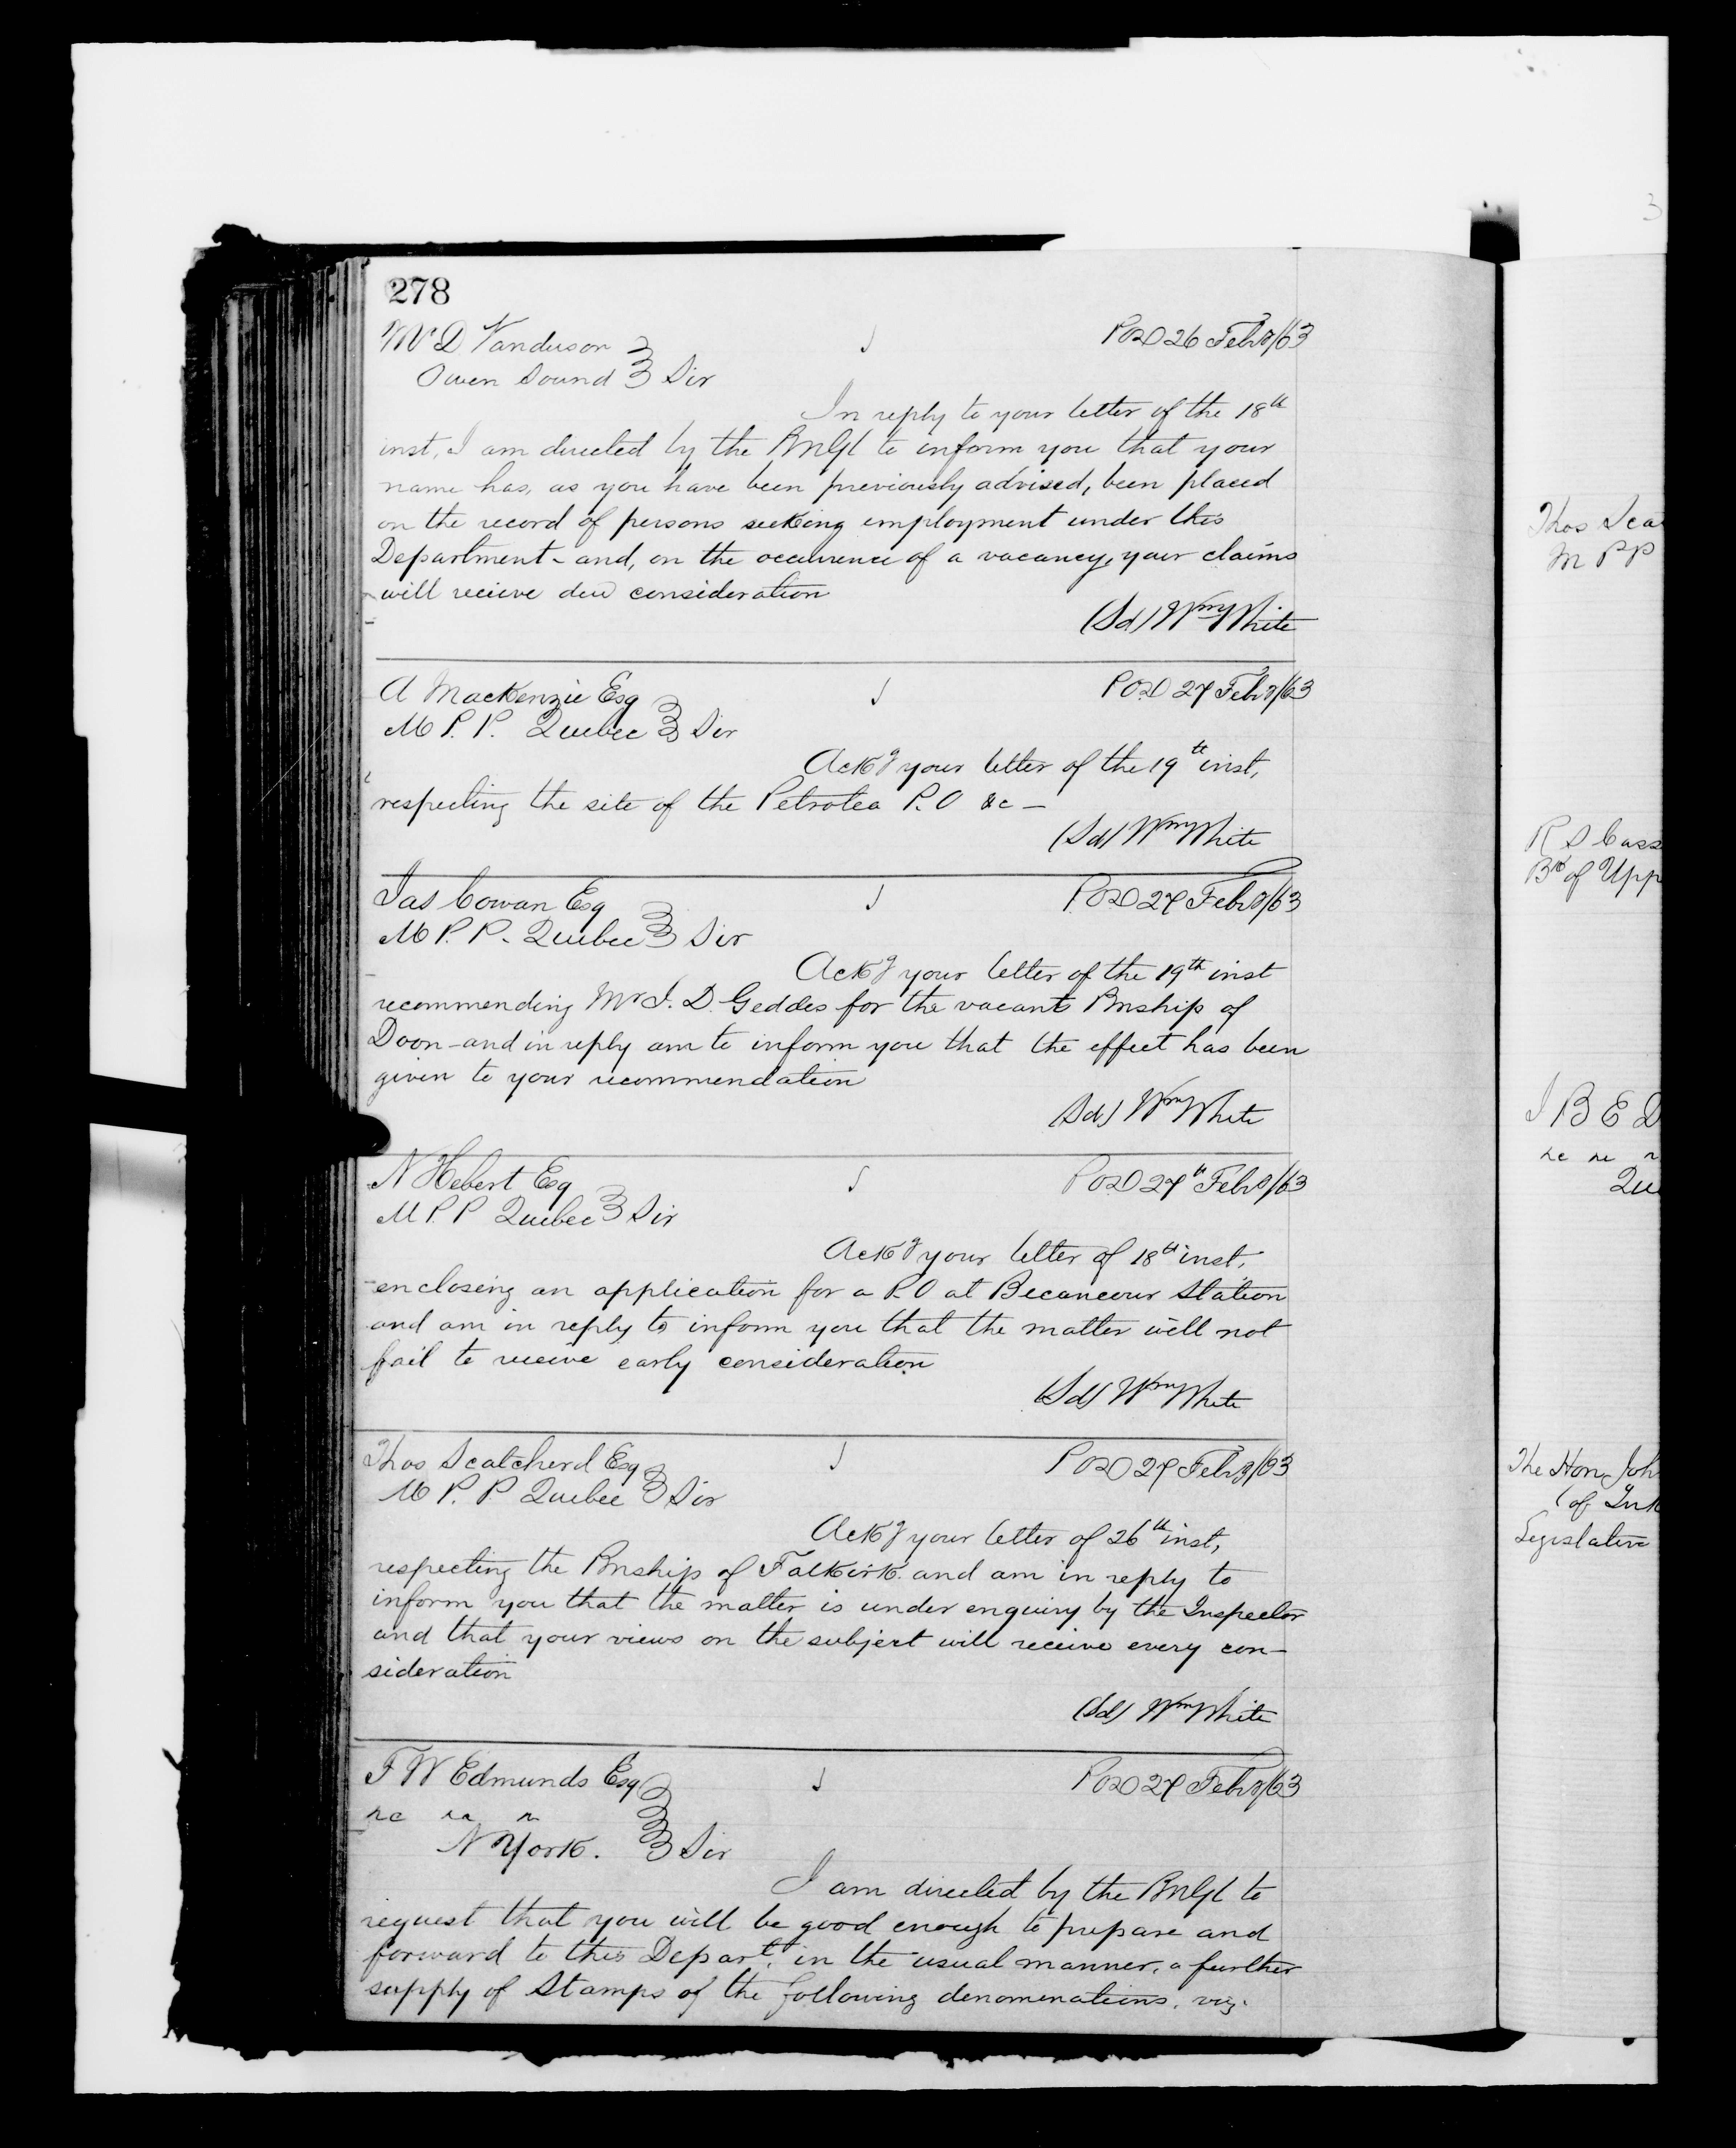 278
W D Vanduson
Owen Sound } Sir
POD 26 Feby/63
In reply to your letter of the 18th
inst, I am directed by the PMGl to inform you that your
name has, as you have been previously advised, been placed
on the record of persons seeking employment under this
Department - and, on the occurrence of a vacancy, your claims
will recieve due consideration
(Sd) Wm White
A MacKenzie Esq
M P. P. Quebec } Sir
POD 27 Feby/63
Ackg your letter of the 19th inst,
respecting the site of the Petrolea P. O &c -
(Sd) Wm White
Jas Cowan Esq
M P. P. Quebec } Sir
POD 27 Feby/63
Ackg your letter of the 19th inst
recommending Mr J. D. Geddes for the vacant Pmship of
Doon - and in reply am to inform you that the effect has been
given to your recommendation
(Sd) Wm White
N Hebert Esq
M P. P Quebec } Sir
POD 27th Feby/63
Ackg your letter of 18th inst,
enclosing an application for a P. O at Becancour Station
and am in reply to inform you that the matter will not
fail to receive early consideration
(Sd) Wm White
Thos Scatcherd Esq
M P. P. Quebec } Sir
POD 27 Feby/63
Ackg your letter of 26th inst,
respecting the Pmship of Falkirk and am in reply to
inform you that the matter is under enquiry by the Inspector
and that your views on the subject will receive every con-
sideration
(Sd) Wm White
F W Edmunds Esq
&c &c &c
N York. } Sir
POD 27 Feby/63
I am directed by the PMGl to
request that you will be good enough to prepare and
forward to this Depart. in the usual manner, a further
supply of Stamps of the following denomenations, viz.
3
Thos Sca
M P P
R S Cass
Bk of Upp
J B E D
&c &c
Que
The Hon John
(of Ink
Legislative